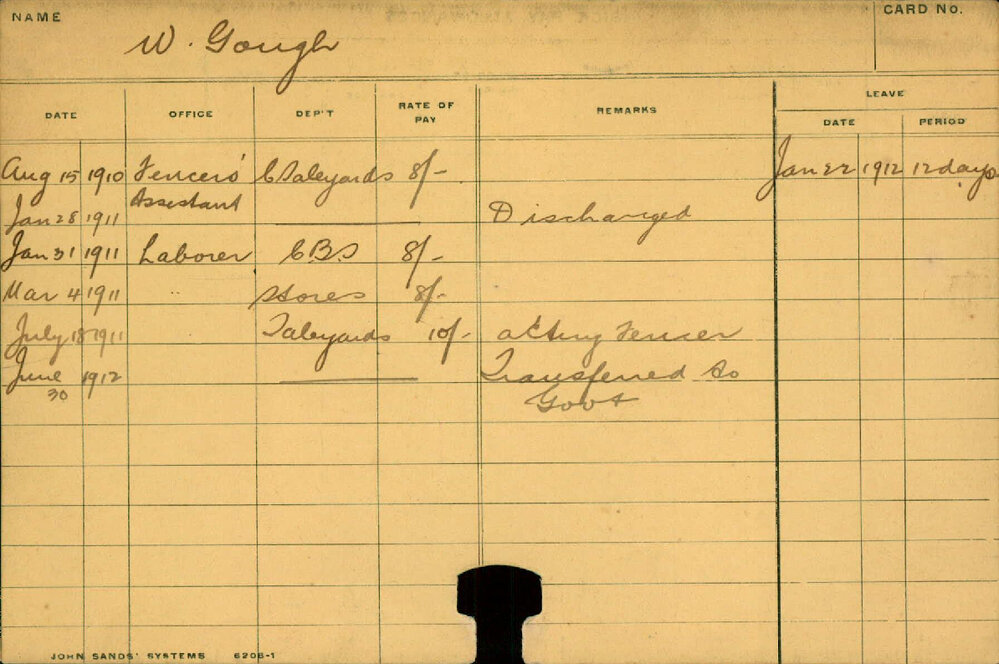 NAME
CARD NO.
W. Gough
LEAVE
DATE OFFICE DEP'T RATE OF PAY REMARKS DATE PERIOD
Aug 15 1910 Fencers' C Saleyards 8/- Jan 22 1912 12 days
Assistant
Jan 28 1911 Discharged
Jan 31 1911 Laborer C.B.S 8/-
Mar 4 1911 " Stores 8/-
July 18 1911 Saleyards 10/- acting Fencer
June 1912 Transferred to
30 Govt
JOHN SANDS' SYSTEMS 6206-1